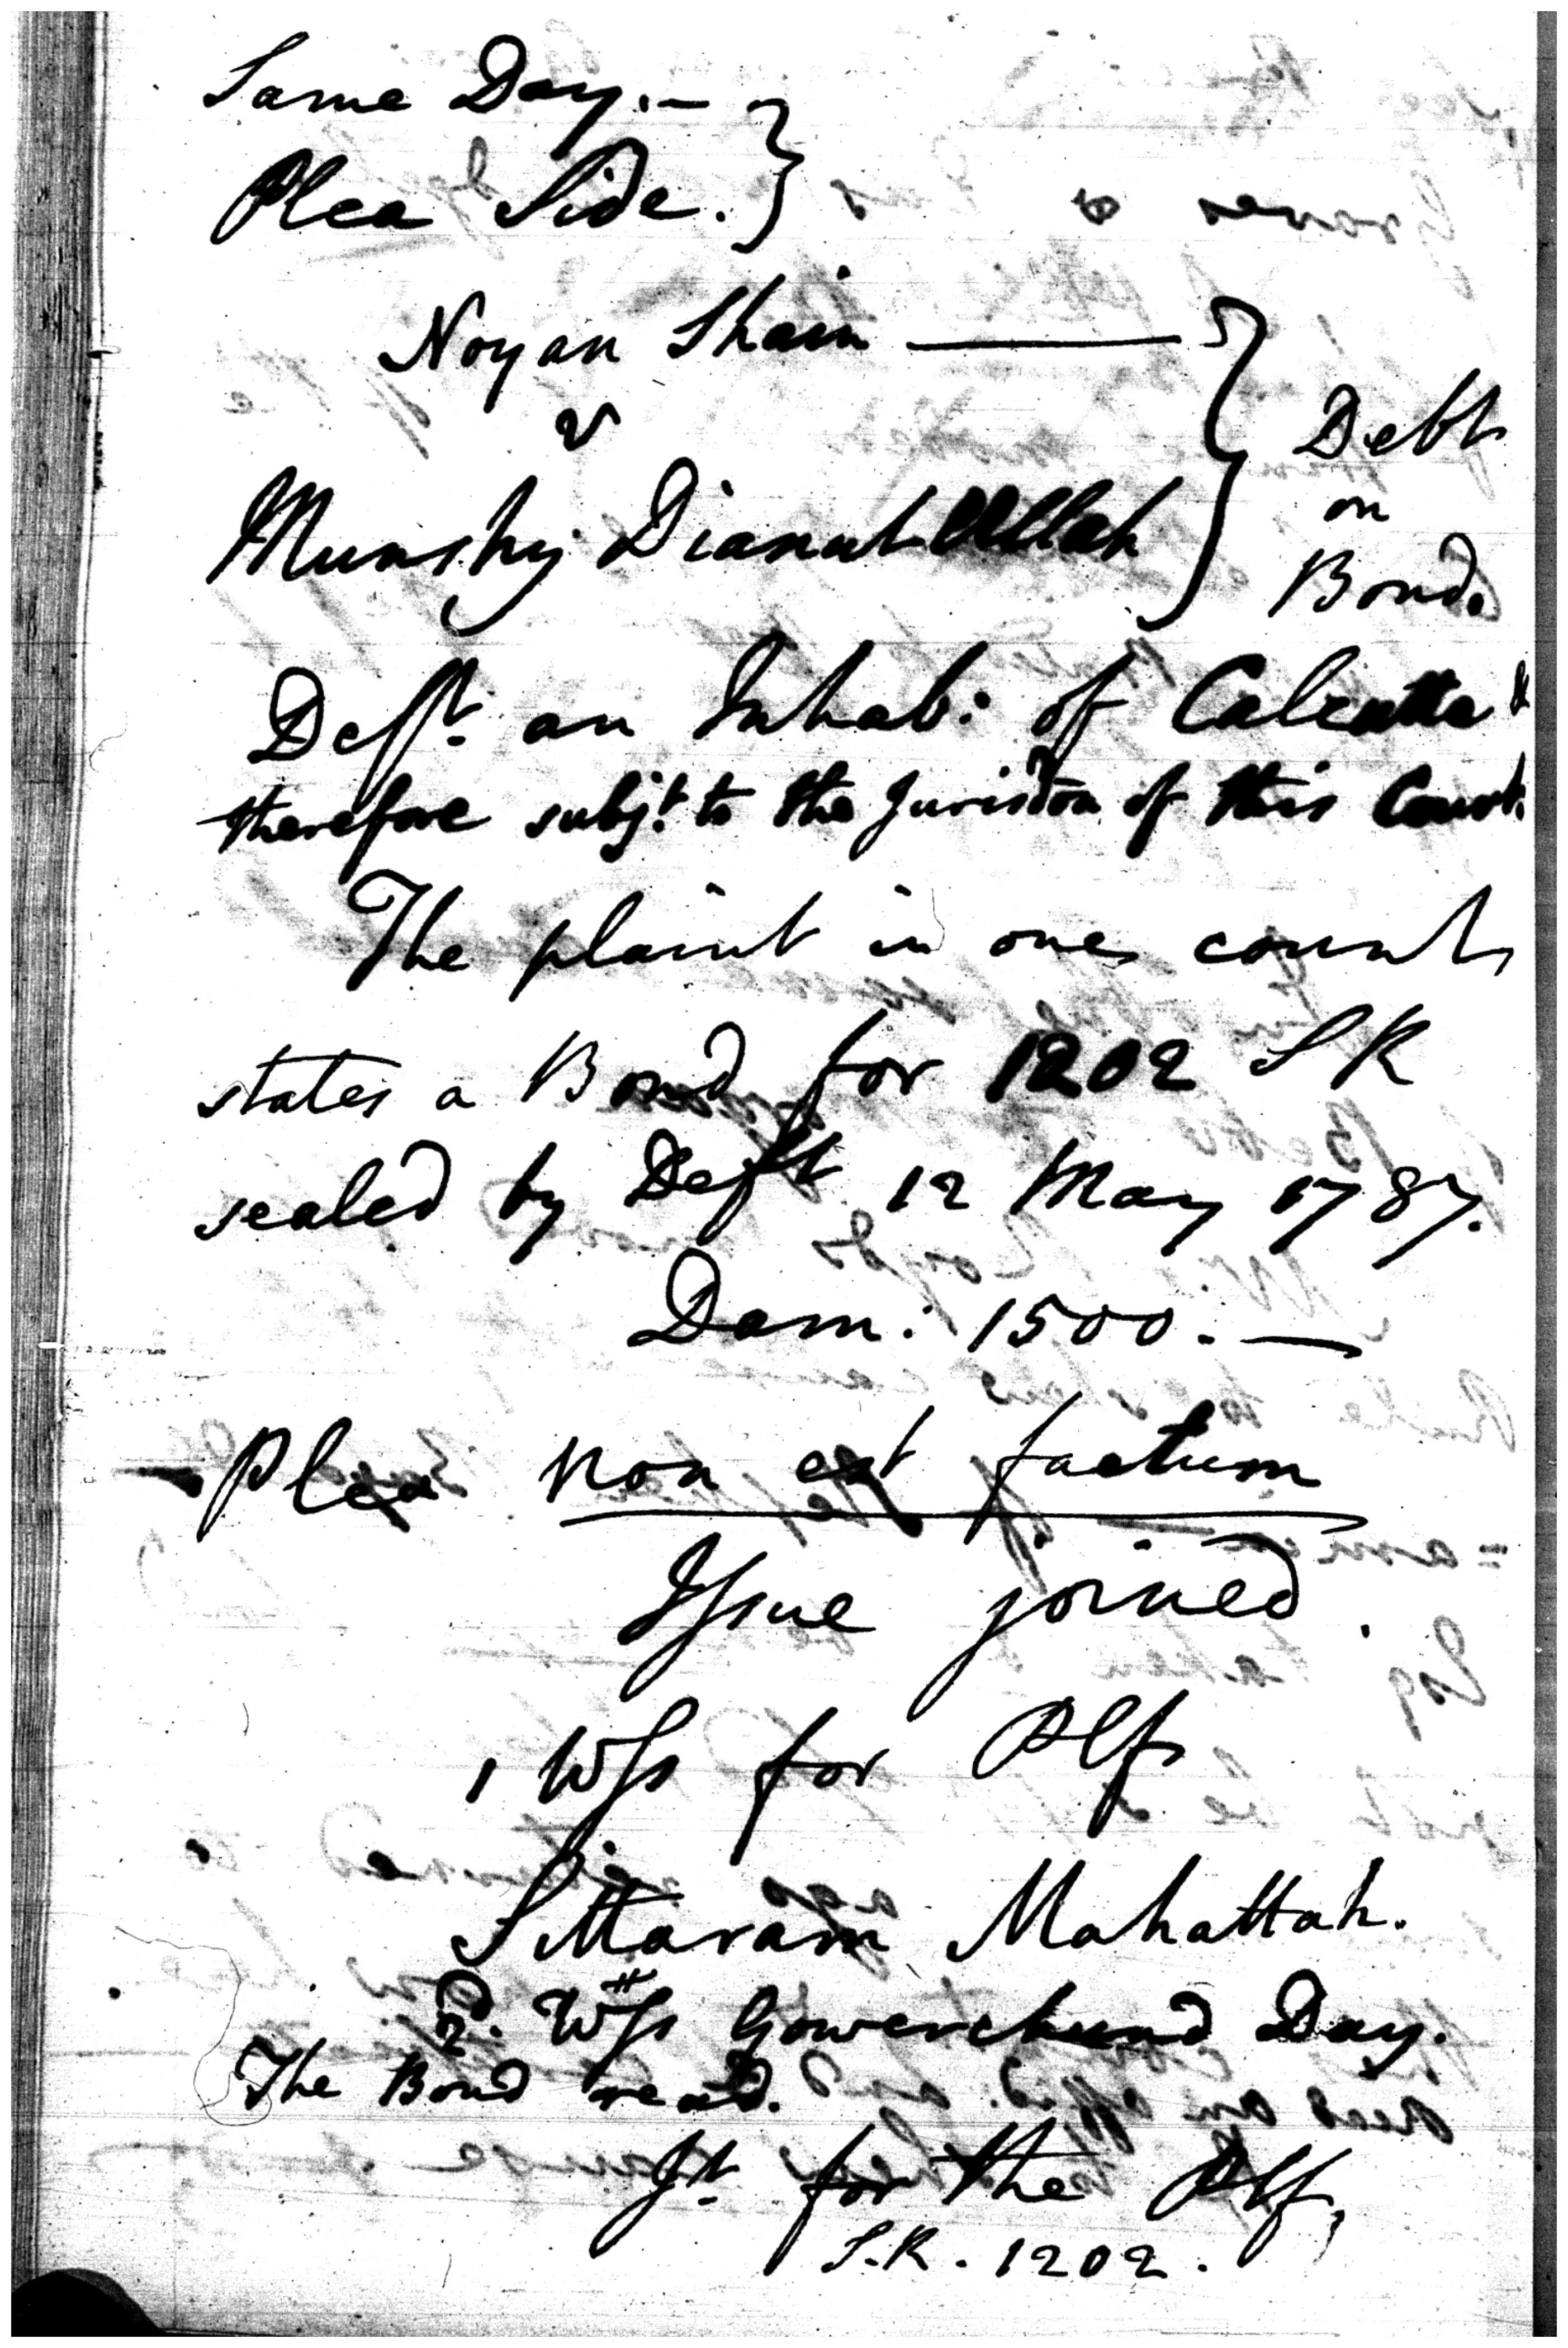 Same Day. —
Plea Side.
Noyan Shain —
v
Munshy Dianat Ullah
Debt
on
Bond.
Defft. an Inhab: of Calcutta &
therefore subjt. to the Jurisdon of this Court.
The plaint in one count
states a Bond for 1202 S R
sealed by Deft 12 May 1787.
Dam: 1500. —
Plea non est factum
Issue joined.
1 Wss for Plf
Sittaram Mahattah.
2d. Wss Gowerchund Day.
The Bond read.
Jt for the Plf,
S.R. 1202.